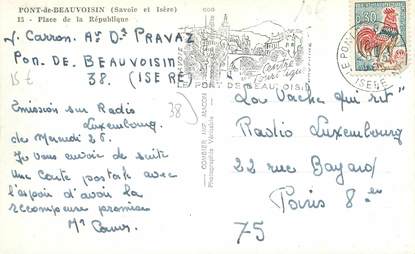 PONT-de-BEAUVOISIN (Savoie et Isère)
15 - Place de la République
Carron. Pravaz
Pon. De. Beauvoisin
15€ 38. (ISERE)
38)
Emission sur Radio
Luxembourg
de Mercredi 26
Je vous envoie de suite
une carte postale avec
l'espoir d'avoir la
recompense promise
COMBIER IMP. MACON
Photographie Véritable
Centre
Touristique
LE PONT DE BEAUVOISIN
0,30
La Vache qui rit"
Radio Luxembourg
22 rue Bayard
Paris 8 en
75